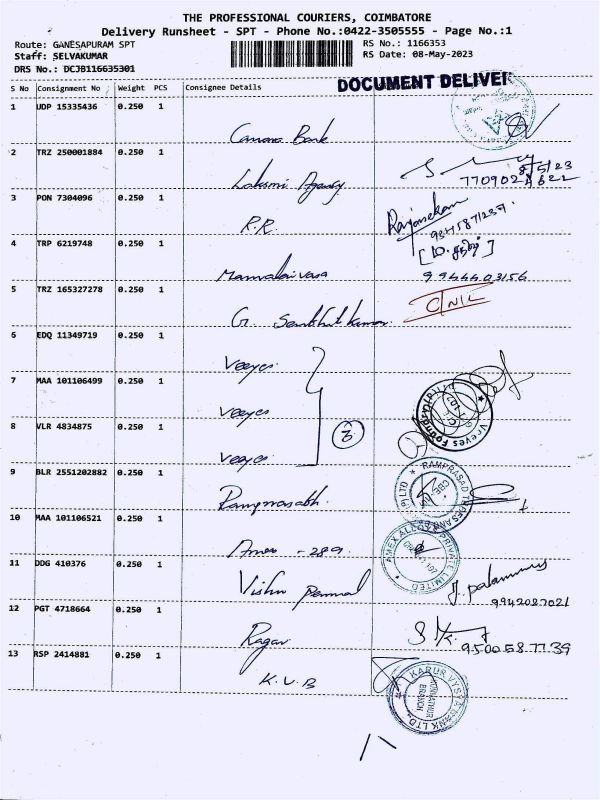 THE PROFESSIONAL COURIERS, COIMBATORE
Delivery Runsheet - SPT - Phone No.:0422-3505555 - Page No.:1
Route: GANESAPURAM SPT
RS No.: 1166353
Staff: SELVAKUMAR
RS Date: 08-May-2023
DRS No.: DCJB116635301
DOCUMENT DELIVER
S No Consignment No Weight PCS Consignee Details
1 UDP 15335436 0.250 1
Canara Bank
2 TRZ 250001884 0.250 1
8/5/23
Laksmi Agency
3 PON 7304096 0.250 1
Rajasekam
R.R.
4 TRP 6219748 0.250 1
9944403156
5 TRZ 165327278 0.250 1
C/NIL
G.
6 EDQ 11349719 0.250 1
Veeyes
7 MAA 101106499 0.250 1
Veeyes
8 VLR 4834875 0.250 1
3
Veeyes
9 BLR 2551202882 0.250 1
Ramprasath.
10 MAA 101106521 0.250 1
AMEX ALLOYS PRIVATE LIMITED
Amex - 289
11 DDG 410376 0.250 1
Vishnu Perumal
9942087021
12 PGT 4718664 0.250 1
Ragav
9500587739
13 RSP 2414881 0.250 1
K.V.B
KARUR VYSYA BANK LTD
BRANCH